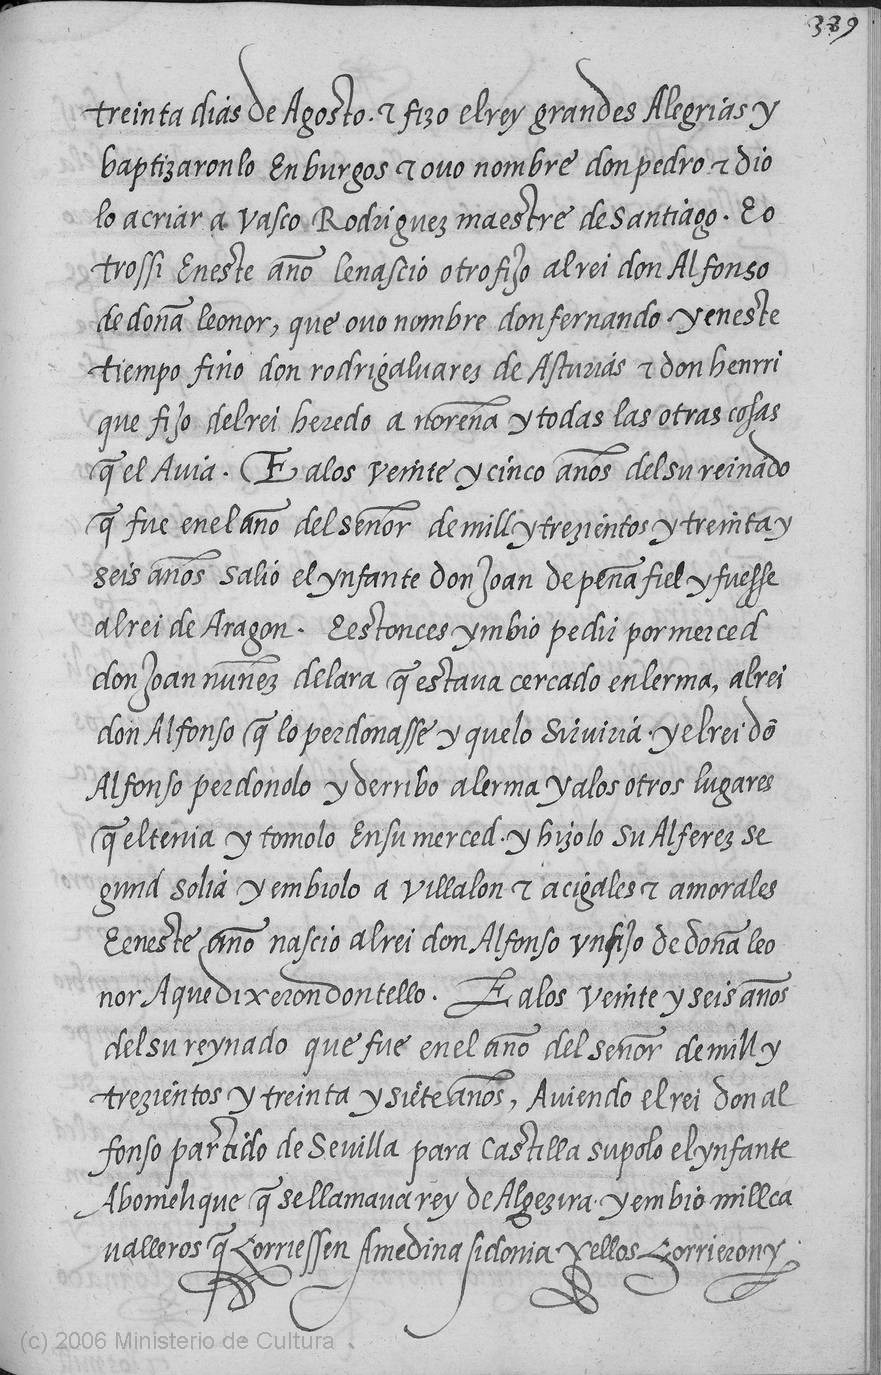 339
treinta dias de Agosto. τ fizo el rey grandes Alegrias y
baptizaronlo En burgos τ ouo nombre don pedro τ dio
lo a criar a Vasco Rodriguez maestre de Santiago. E o
trossi Eneste año lenascio otro fijo al rei don Alfonso
de doña leonor, que ouo nombre don fernando. y eneste
tiempo fino don rodrigaluarez de Asturias τ don henrri
que fijo del rei heredo a noreña y todas las otras cosas
q̃ el Auia. E a los veinte y cinco años del su reinado
q̃ fue enel año del señor de mill y trezientos y treinta y
seis años salio el ynfante don Joan de peñafiel y fuesse
al rei de Aragon. E estonces ymbio pedir por merced
don Joan nuñez delara q̃ estaua cercado en lerma, al rei
don Alfonso q̃ lo perdonasse y que lo Siruiria. y el rei dõ
Alfonso perdonolo y derribo a lerma y a los otros lugares
q̃ el tenia y tomolo Ensu merced. y hizolo Su Alferez se
gund solia y embiolo a villalon τ a cigales τ a morales
E eneste año nascio al rei don Alfonso vn fijo de doña leo
nor A que dixeron don tello. E a los veinte y seis años
del su reynado que fue enel año del señor de mill y
trezientos y treinta y siete años, Auiendo el rei don al
fonso partido de Sevilla para Castilla supolo el ynfante
Abomelique q̃ se llamaua rey de Algezira. y embio mill ca
ualleros q̃ Corriessen A medina sidonia y ellos Corrieron y
(c) 2006 Ministerio de Cultura